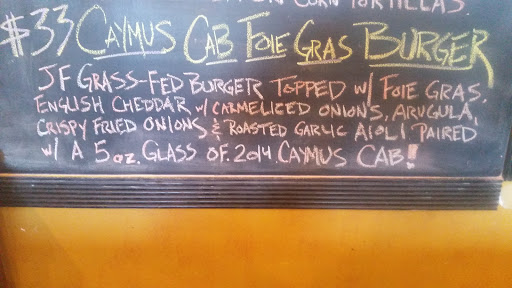 CORN TORTILLAS.
$33 CAYMUS CAB FOIE GRAS BURGER
JF GRASS-FED BURGER TOPPED W/ FOIE GRAS,
ENGLISH CHEDDAR W/ CARMELICED ONIONS, ARUGULA,
CRISPY FRIED ONIONS & ROASTED GARLIC AIOLI PAIRED
W/ A 5 oz. GLASS OF 2014 CAYMUS CAB!